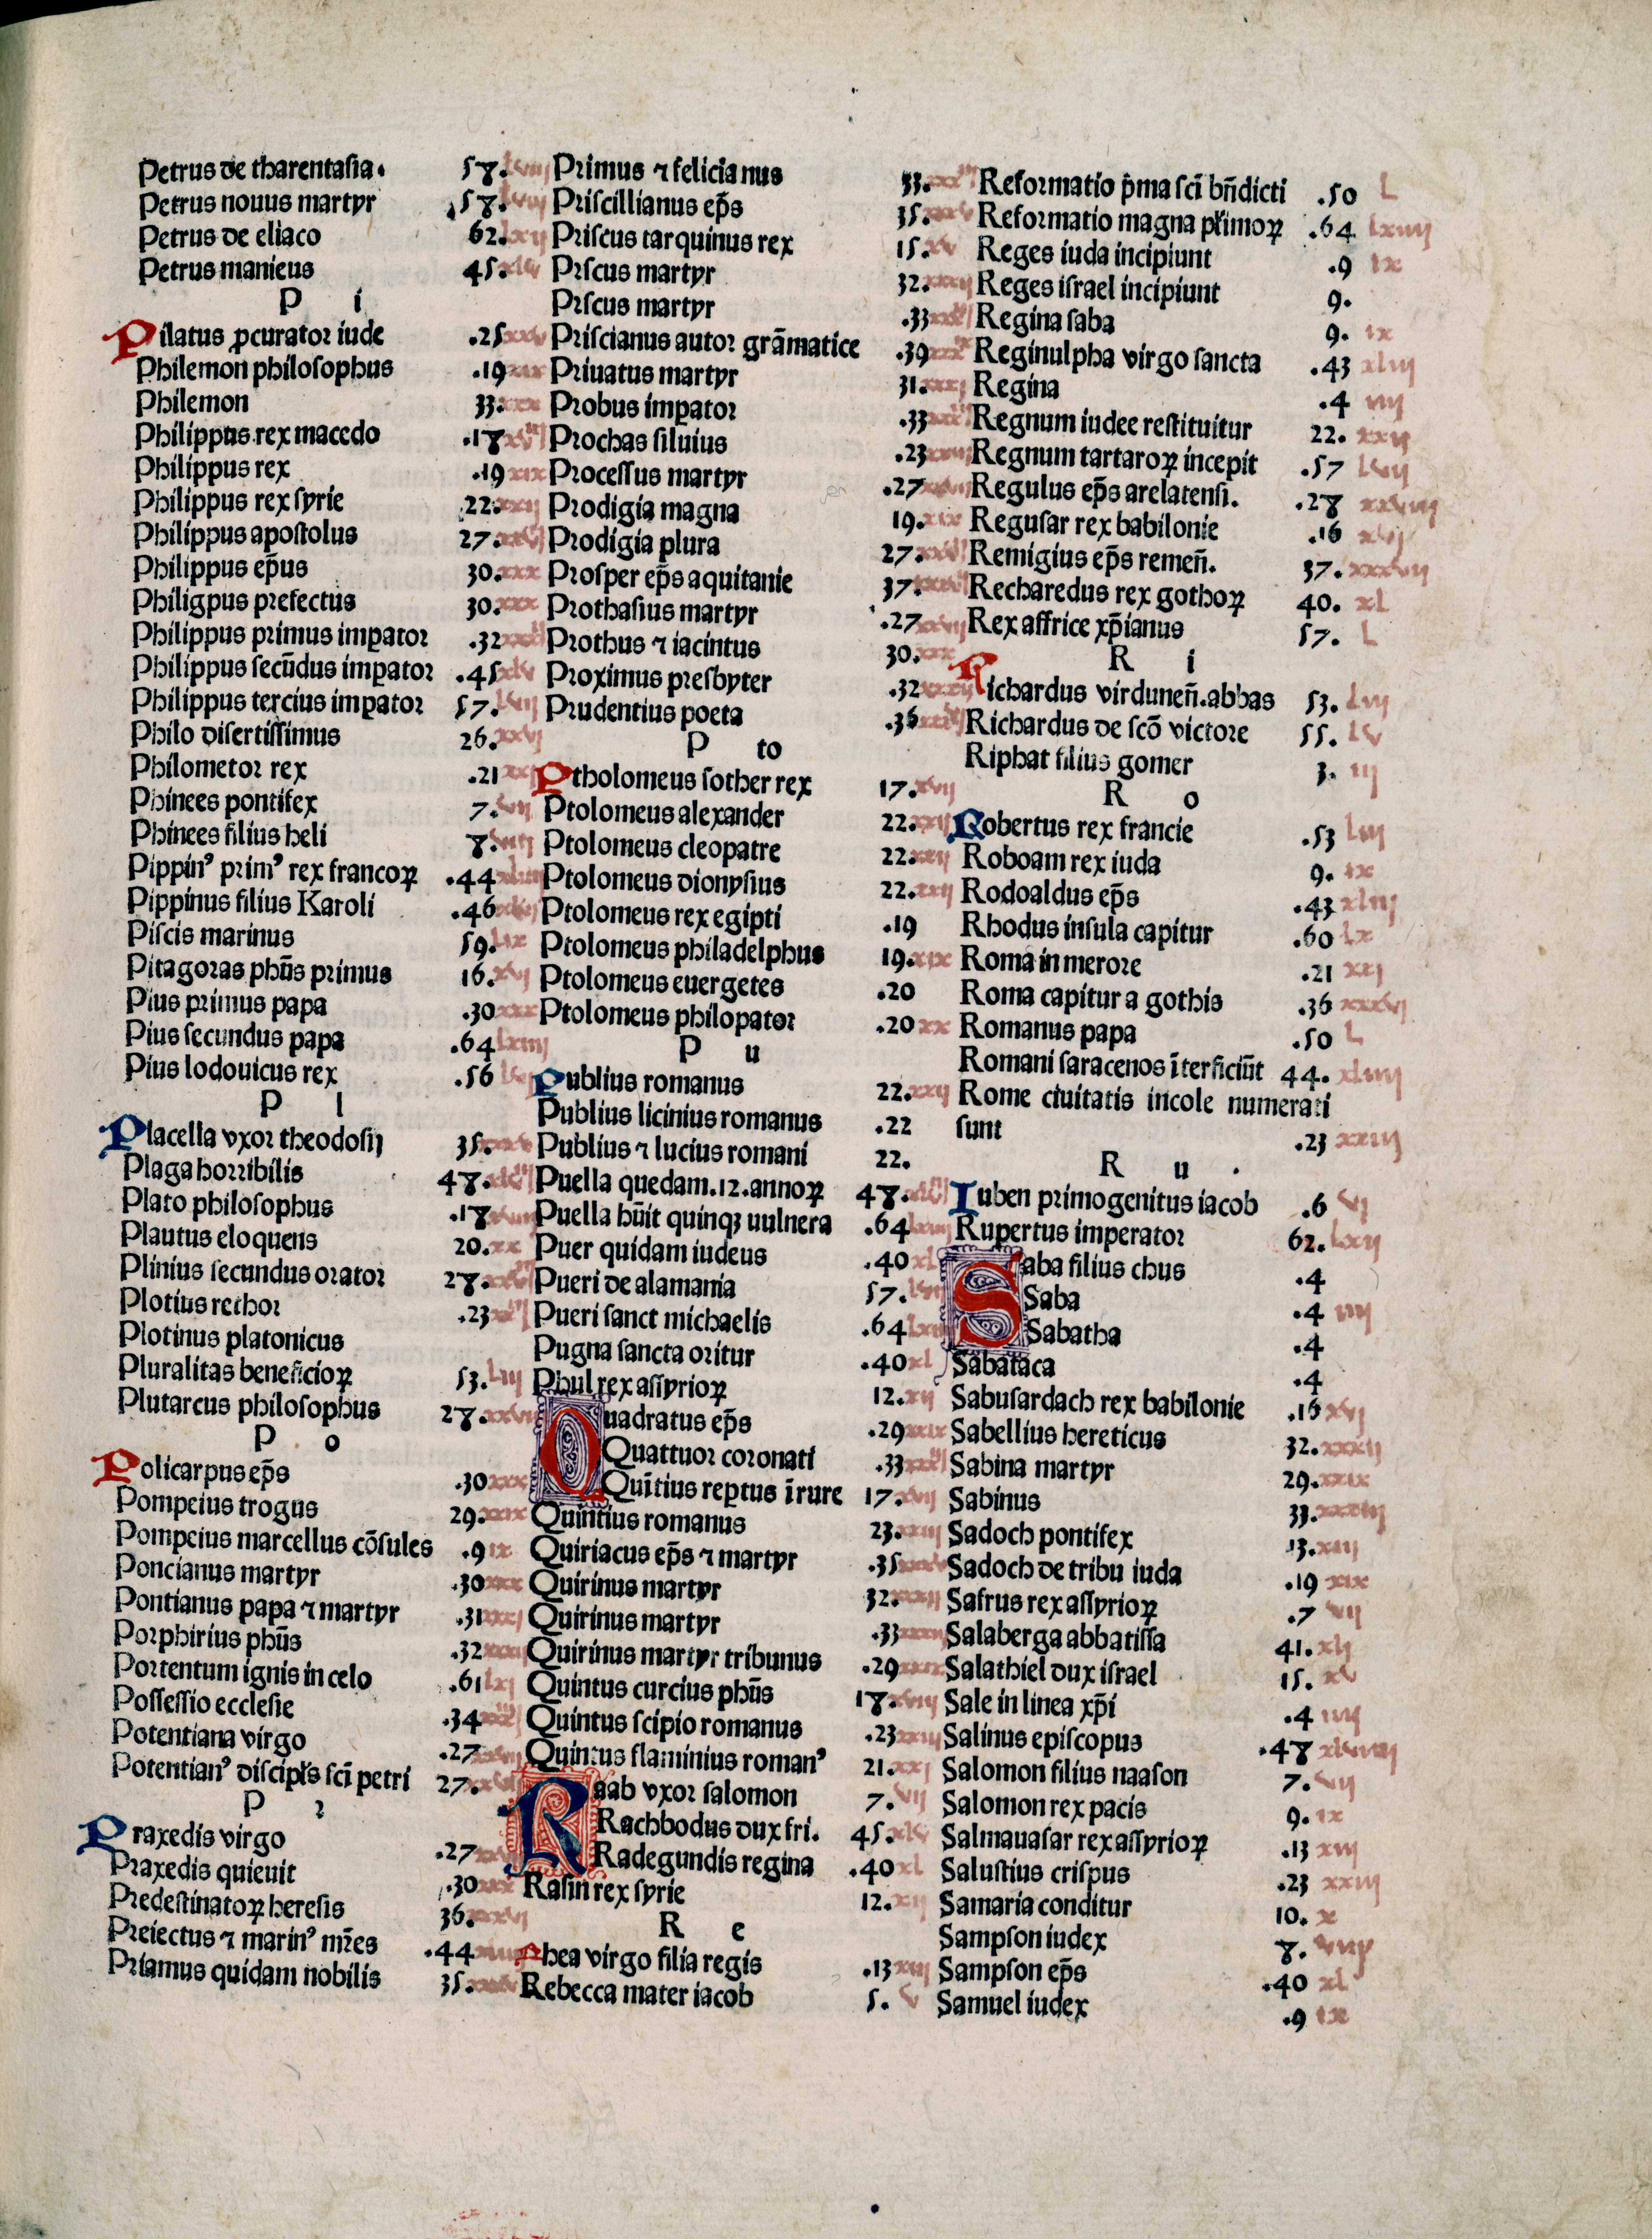 Petrus de tharentasia. 58. lviij
Petrus nouus martyr .58. lviij
Petrus de eliaco 62. lxij
Petrus manicus 45. xlv
P i
Pilatus ꝓcurator iude .25 xxv
Philemon philosophus .19 xix
Philemon 33. xxx
Philippus.rex macedo .18
Philippus rex .19 xix
Philippus rex syrie 22. xxij
Philippus apostolus 27.
Philippus ep̄us 30. xxx
Philigpus prefectus 30. xxx
Philippus primus imꝑator .32
Philippus secūdus imꝑator .45 xlv
Philippus tercius imꝑator 57. lvij
Philo disertissimus 26. xxvj
Philometor rex .21 xxj
Phinees pontifex 7. vij
Phinees filius heli 8. viij
Pippinꝰ primꝰ rex francoꝝ .44 xliiij
Pippinus filius Karoli .46 xlvj
Piscis marinus 59. lix
Pitagoras ph̄us primus 16. xvj
Pius primus papa .30 xxx
Pius secundus papa .64 lxiiij
Pius lodouicus rex .56 lvj
P l
Placella vxor theodosij 35. xxxv
Plaga horribilis 48.
Plato philosophus .18 xviij
Plautus eloquens 20. xx
Plinius secundus orator 28.
Plotius rethor .23
Plotinus platonicus
Pluralitas beneficioꝝ 53. liij
Plutarcus philosophus 28. xxviij
P o
Policarpus ep̄s .30 xxx
Pompeius trogus 29. xxix
Pompeius marcellus cōsules .9 ix
Poncianus martyr .30 xxx
Pontianus papa ⁊ martyr .31 xxxj
Porphirius ph̄us .32 xxxij
Portentum ignis in celo .61 lxj
Possessio ecclesie .34
Potentiana virgo .27 xxvij
Potentianꝰ discipl̄s sci̅ petri 27.
P r
Praxedis virgo .27
Praxedis quieuit .30 xxx
Predestinatoꝝ heresis 36. xxxvj
Preiectus ⁊ marinꝰ mr̄es .44
Priamus quidam nobilis 35. xxxv
Primus ⁊ felicianus 33.
Priscillianus ep̄s 35. xxxv
Priscus tarquinus rex 15. xv
Priscus martyr 32. xxxij
Priscus martyr .33
Priscianus autor grāmatice .39
Priuatus martyr 31. xxxj
Probus imꝑator .33
Prochas siluius .23 xxiij
Processus martyr .27 xxvij
Prodigia magna 19. xix
Prodigia plura 27.
Prosper ep̄s aquitanie 37.
Prothasius martyr .27 xxvij
Prothus ⁊ iacintus 30. xxx
Proximus presbyter .32 xxxij
Prudentius poeta .36
P to
Ptholomeus sother rex 17. xvij
Ptolomeus alexander 22. xxij
Ptolomeus cleopatre 22. xxij
Ptolomeus dionysius 22. xxij
Ptolomeus rex egipti .19
Ptolomeus philadelphus 19. xix
Ptolomeus euergetes .20
Ptolomeus philopator .20 xx
P u
Publius romanus 22. xxij
Publius licinius romanus .22
Publius ⁊ lucius romani 22.
Puella quedam.12.annoꝝ 48.
Puella hūit quinqꝫ uulnera .64 lxiiij
Puer quidam iudeus .40 xl
Pueri de alamania 57. lvij
Pueri sanct michaelis .64
Pugna sancta oritur .40 xl
Phul rex assyrioꝝ 12. xij
Quadratus ep̄s .29 xxix
Quattuor coronati .33
Quītius reꝑtus ī rure 17. xvij
Quintius romanus 23. xxiij
Quiriacus ep̄s ⁊ martyr .35 xxxv
Quirinus martyr 32. xxxij
Quirinus martyr .33
Quirinus martyr tribunus .29
Quintus curcius ph̄us 18. xviij
Quintus scipio romanus .23 xxiij
Quintus flaminius romanꝰ 21. xxj
Raab vxor salomon 7. vij
Rachbodus dux fri. 45. xlv
Radegundis regina .40 xl
Rasin rex syrie 12. xij
R e
Rhea virgo filia regis .13 xiij
Rebecca mater iacob 5. v
Reformatio p̄ma sci̅ bn̄dicti .50 L
Reformatio magna pl̄imoꝝ .64 lxiiij
Reges iuda incipiunt .9 ix
Reges israel incipiunt 9.
Regina saba 9. ix
Reginulpha virgo sancta .43 xliij
Regina .4 iiij
Regnum iudee restituitur 22. xxij
Regnum tartaroꝝ incepit .57 lvij
Regulus ep̄s arelatensi. .28 xxviij
Regusar rex babilonie .16 xvj
Remigius ep̄s remen̄. 37. xxxvij
Recharedus rex gothoꝝ 40. xl
Rex affrice xp̄ianus 57. L
R i
Richardus virdunen̄.abbas 53. Lvij
Richardus de scō victore 55. lv
Riphat filius gomer 3. iij
R o
Robertus rex francie .53 liij
Roboam rex iuda 9. ix
Rodoaldus ep̄s .43 xliij
Rhodus insula capitur .60 lx
Roma in merore .21 xxj
Roma capitur a gothis .36 xxxvj
Romanus papa .50 L
Romani saracenos īterficiūt 44. xliiij
Rome ciuitatis incole numerati
sunt .23 xxiij
R u .
Iuben primogenitus iacob .6 vj
Rupertus imperator 62. lxij
Saba filius chus .4
Saba .4 iiij
Sabatha .4
Sabataca .4
Sabusardach rex babilonie .16 xvj
Sabellius hereticus 32. xxxij
Sabina martyr 29. xxix
Sabinus 33. xxxiij
Sadoch pontifex 13. xiij
Sadoch de tribu iuda .19 xix
Safrus rex assyrioꝝ .7 vij
Salaberga abbatissa 41. xlj
Salathiel dux israel 15. xv
Sale in linea xp̄i .4 iiij
Salinus episcopus .48 xlviij
Salomon filius naason 7. vij
Salomon rex pacis 9. ix
Salmauasar rex assyrioꝝ .13 xiij
Salustius crispus .23 xxiij
Samaria conditur 10. x
Sampson iudex 8. viij
Sampson ep̄s .40 xl
Samuel iudex .9 ix